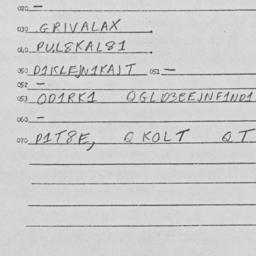 020 —
030 GRIVALAX
040 PUL8KAL81
050 D1KLEJN1KAJT 051 —
052 —
053 OD1RK1 QGLD3EEJNF1ND1
060 —
070 P1T8E, QKOLT QT